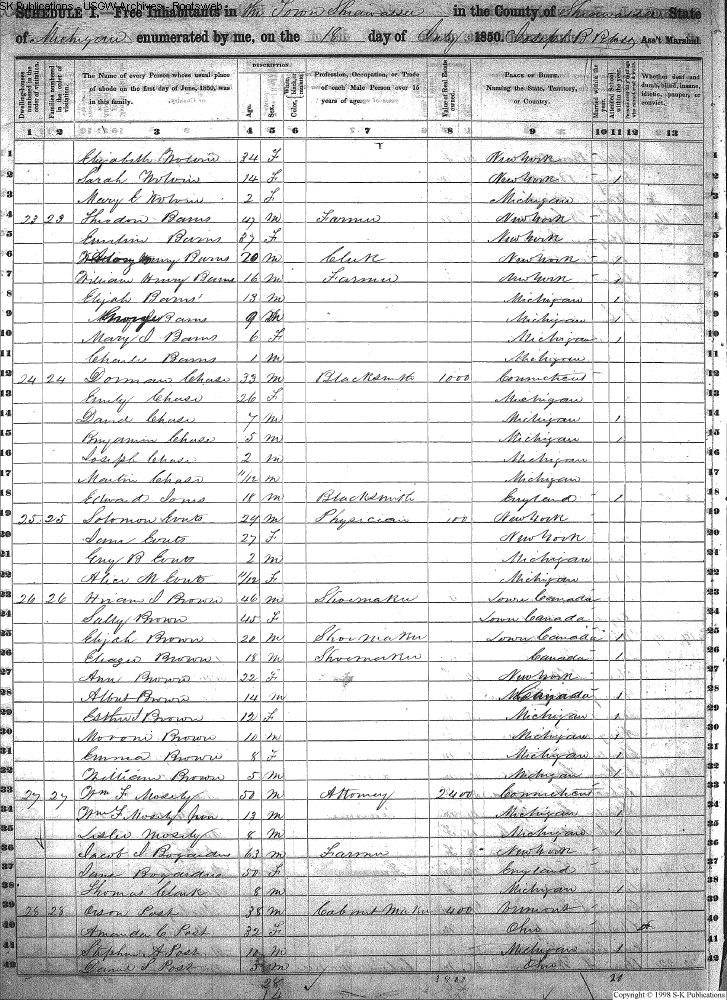 S-K Publications - USGW Archives - Rootsweb
SCHEDULE I.—Free Inhabitants in the Town Shiawassee in the County of Shiawassee State
of Michigan enumerated by me, on the 18 day of July 1850. Ass't Marshal.
Dwelling-houses numbered in the order of visitation.
Families numbered in the order of visitation.
The Name of every Person whose usual place of abode on the first day of June, 1850, was in this family.
DESCRIPTION.
Age.
Sex.
Profession, Occupation, or Trade of each Male Person over 15 years of age.
Value of Real Estate owned.
PLACE OF BIRTH.
Naming the State, Territory, or Country.
Married within the year.
Whether deaf and dumb, blind, insane, idiotic, pauper, or convict.
1 2 3 4 5 6 7 8 9 10 11 12 13
1 Elizabeth Wolvin 34 F New York 1
2 Sarah Wolvin 14 F New York 1 2
3 Mary E Wolvin 2 F Michigan 3
4 23 23 Barns 47 M Farmer New York 4
5 Barns 37 F New York 5
6 Henry Barns 20 M Clerk New York 1 6
7 William Henry Barns 16 M Farmer New York 1 7
8 Elijah Barns 13 M Michigan 1 8
9 George Barns 9 M Michigan 1 9
10 Mary J Barns 6 F Michigan 1 10
11 Charles Barns 1 M Michigan 11
12 24 24 Dorman Chase 33 M Blacksmith 1000 Connecticut 12
13 Emily Chase 26 F Michigan 13
14 David Chase 7 M Michigan 1 14
15 Benjamin Chase 5 M Michigan 1 15
16 Joseph Chase 2 M Michigan 16
17 Martin Chase 11/12 M Michigan 17
18 Edward Jones 18 M Blacksmith England 1 18
19 25 25 Solomon Couts 29 M Physician 100 New York 19
20 Jane Couts 27 F New York 20
21 Guy B Couts 2 M Michigan 21
22 Alice M Couts 11/12 F Michigan 22
23 26 26 Hiram J Brown 46 M Shoemaker Lower Canada 23
24 Sally Brown 45 F Lower Canada 24
25 Elijah Brown 20 M Shoemaker Lower Canada 1 25
26 Brown 18 M Shoemaker Canada 1 26
27 Ann Brown 22 F New York 27
28 Albert Brown 14 M Canada 1 28
29 Esther J Brown 12 F Michigan 1 29
30 Moroni Brown 10 M Michigan 1 30
31 Emma Brown 8 F Michigan 1 31
32 William Brown 5 M Michigan 1 32
33 27 27 Wm F Mosely 50 M Attorney 2400 Connecticut 33
34 Wm F Mosely Jun 13 M Michigan 1 34
35 Leslie Mosely 8 M Michigan 1 35
36 Jacob J Bogardus 63 M Farmer New York 36
37 Jane Bogardus 50 F England 37
38 Thomas Clark 8 M Michigan 1 38
39 28 28 Orson Post 38 M Cabinet Maker 400 Vermont 39
40 Amanda C Post 32 F Ohio 40
41 Stephen A Post 10 M Michigan 1 41
42 Post 3 M Ohio 42
Copyright © 1998 S-K Publications